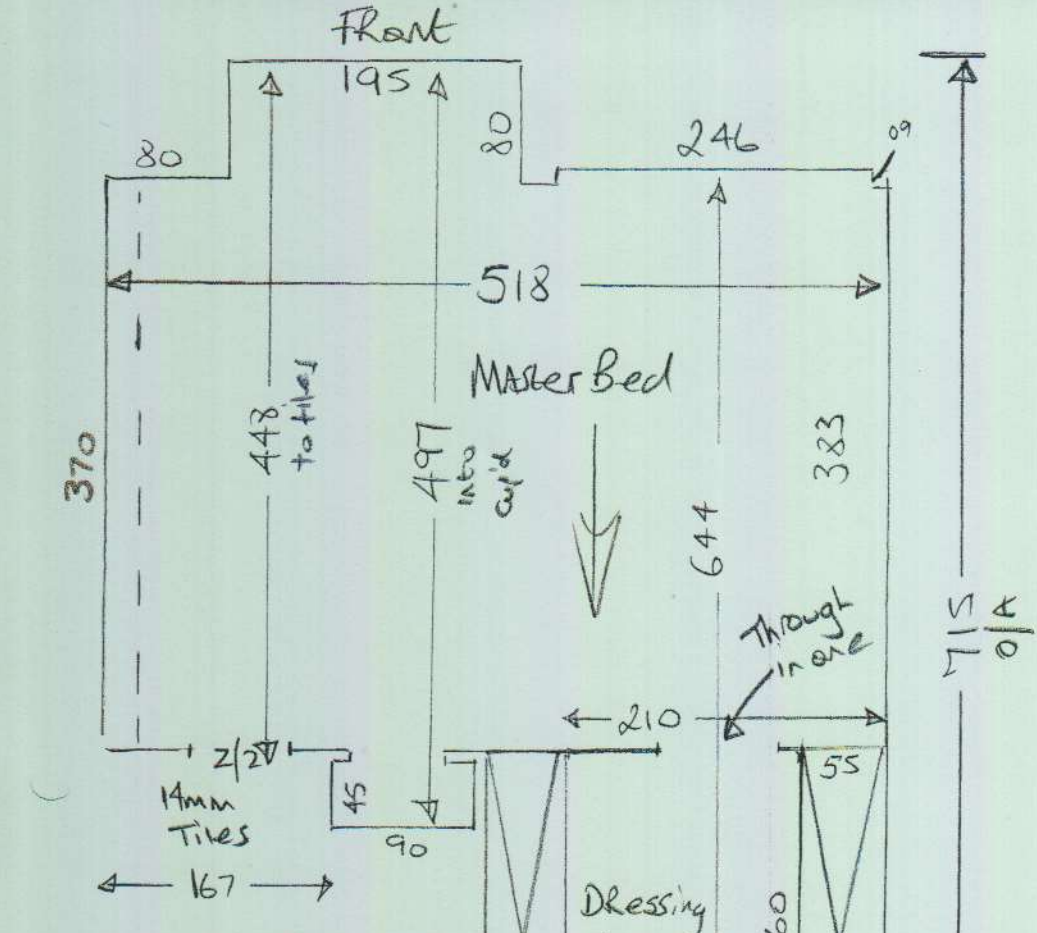 Front
195
80
80
246
09
518
Master Bed
370
448
to tiles
497
into
cup'd
383
644
715
O/A
Through
in one
210
2/2
55
14mm
Tiles
45
90
167
Dressing
60